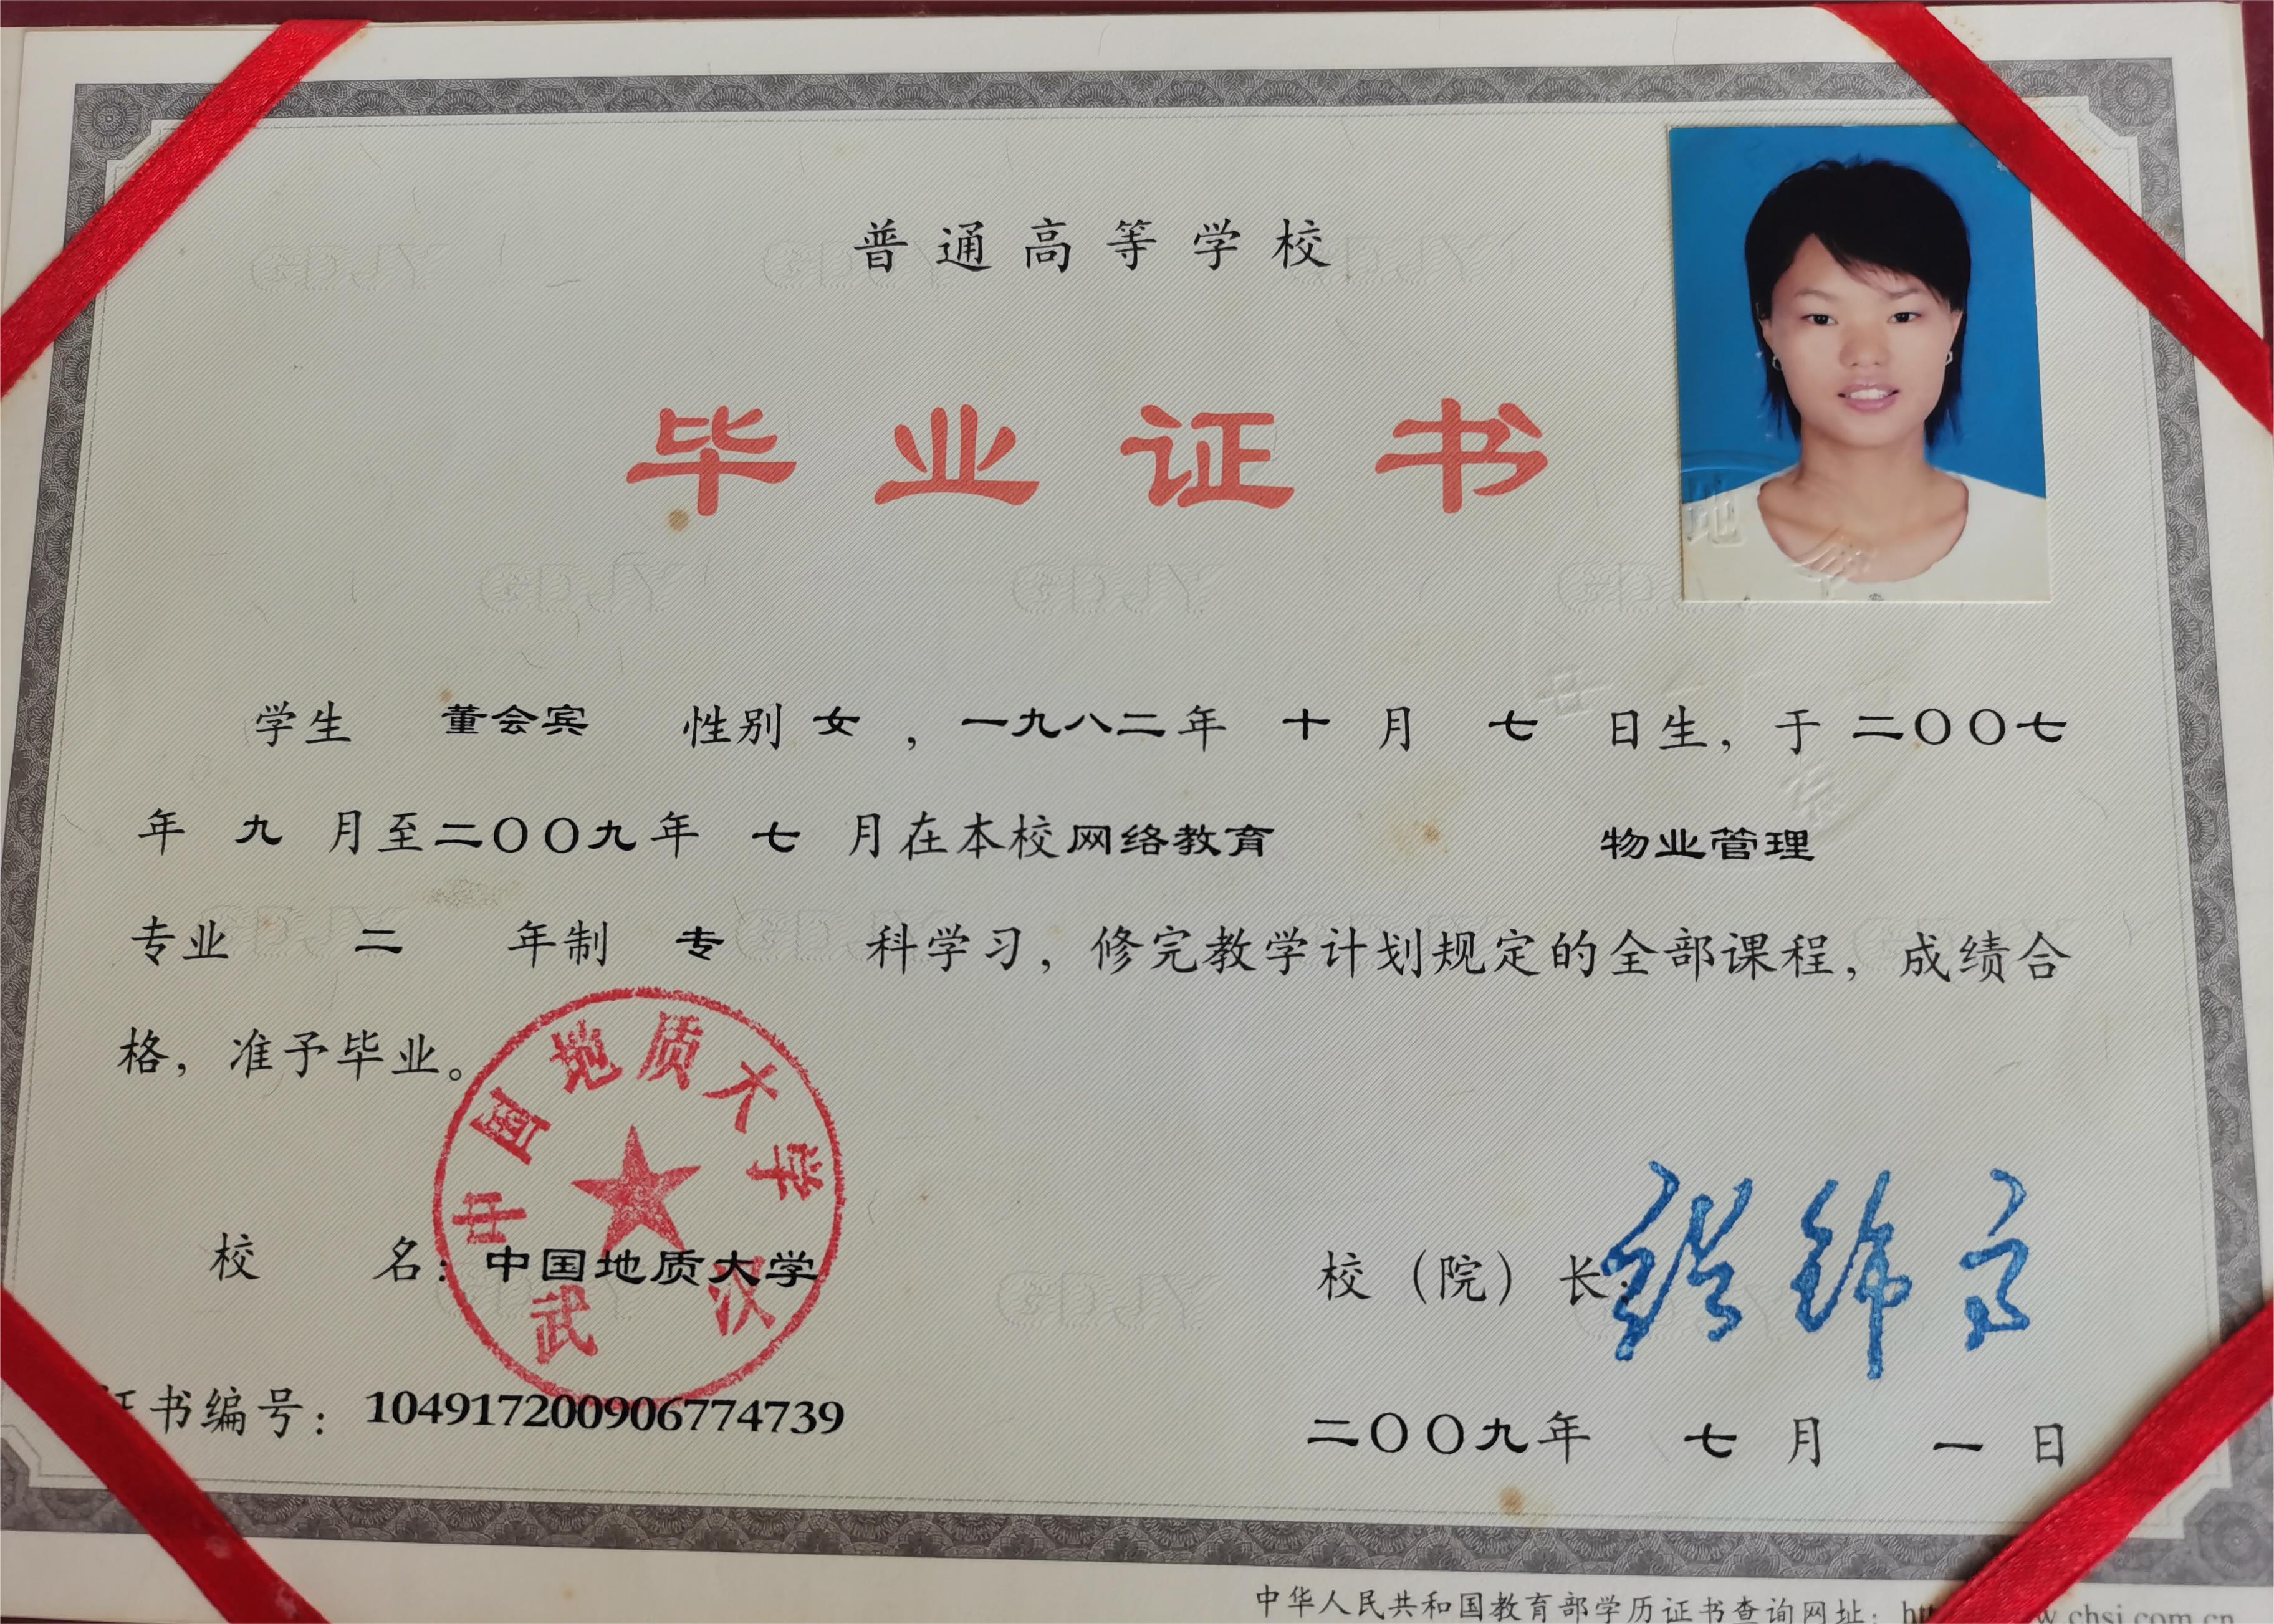 普通高等学校
毕业证书
学生 董会宾 性别 女 ，一九八二年 十 月 七 日生，于 二〇〇七
年 九 月至二〇〇九年 七 月在本校网络教育 物业管理
专业 二 年制 专 科学习，修完教学计划规定的全部课程，成绩合
格，准予毕业。
中国地质大学
武汉
校 名：中国地质大学
校（院）长：张锦高
证书编号：104917200906774739
二〇〇九年 七 月 一 日
中华人民共和国教育部学历证书查询网址：